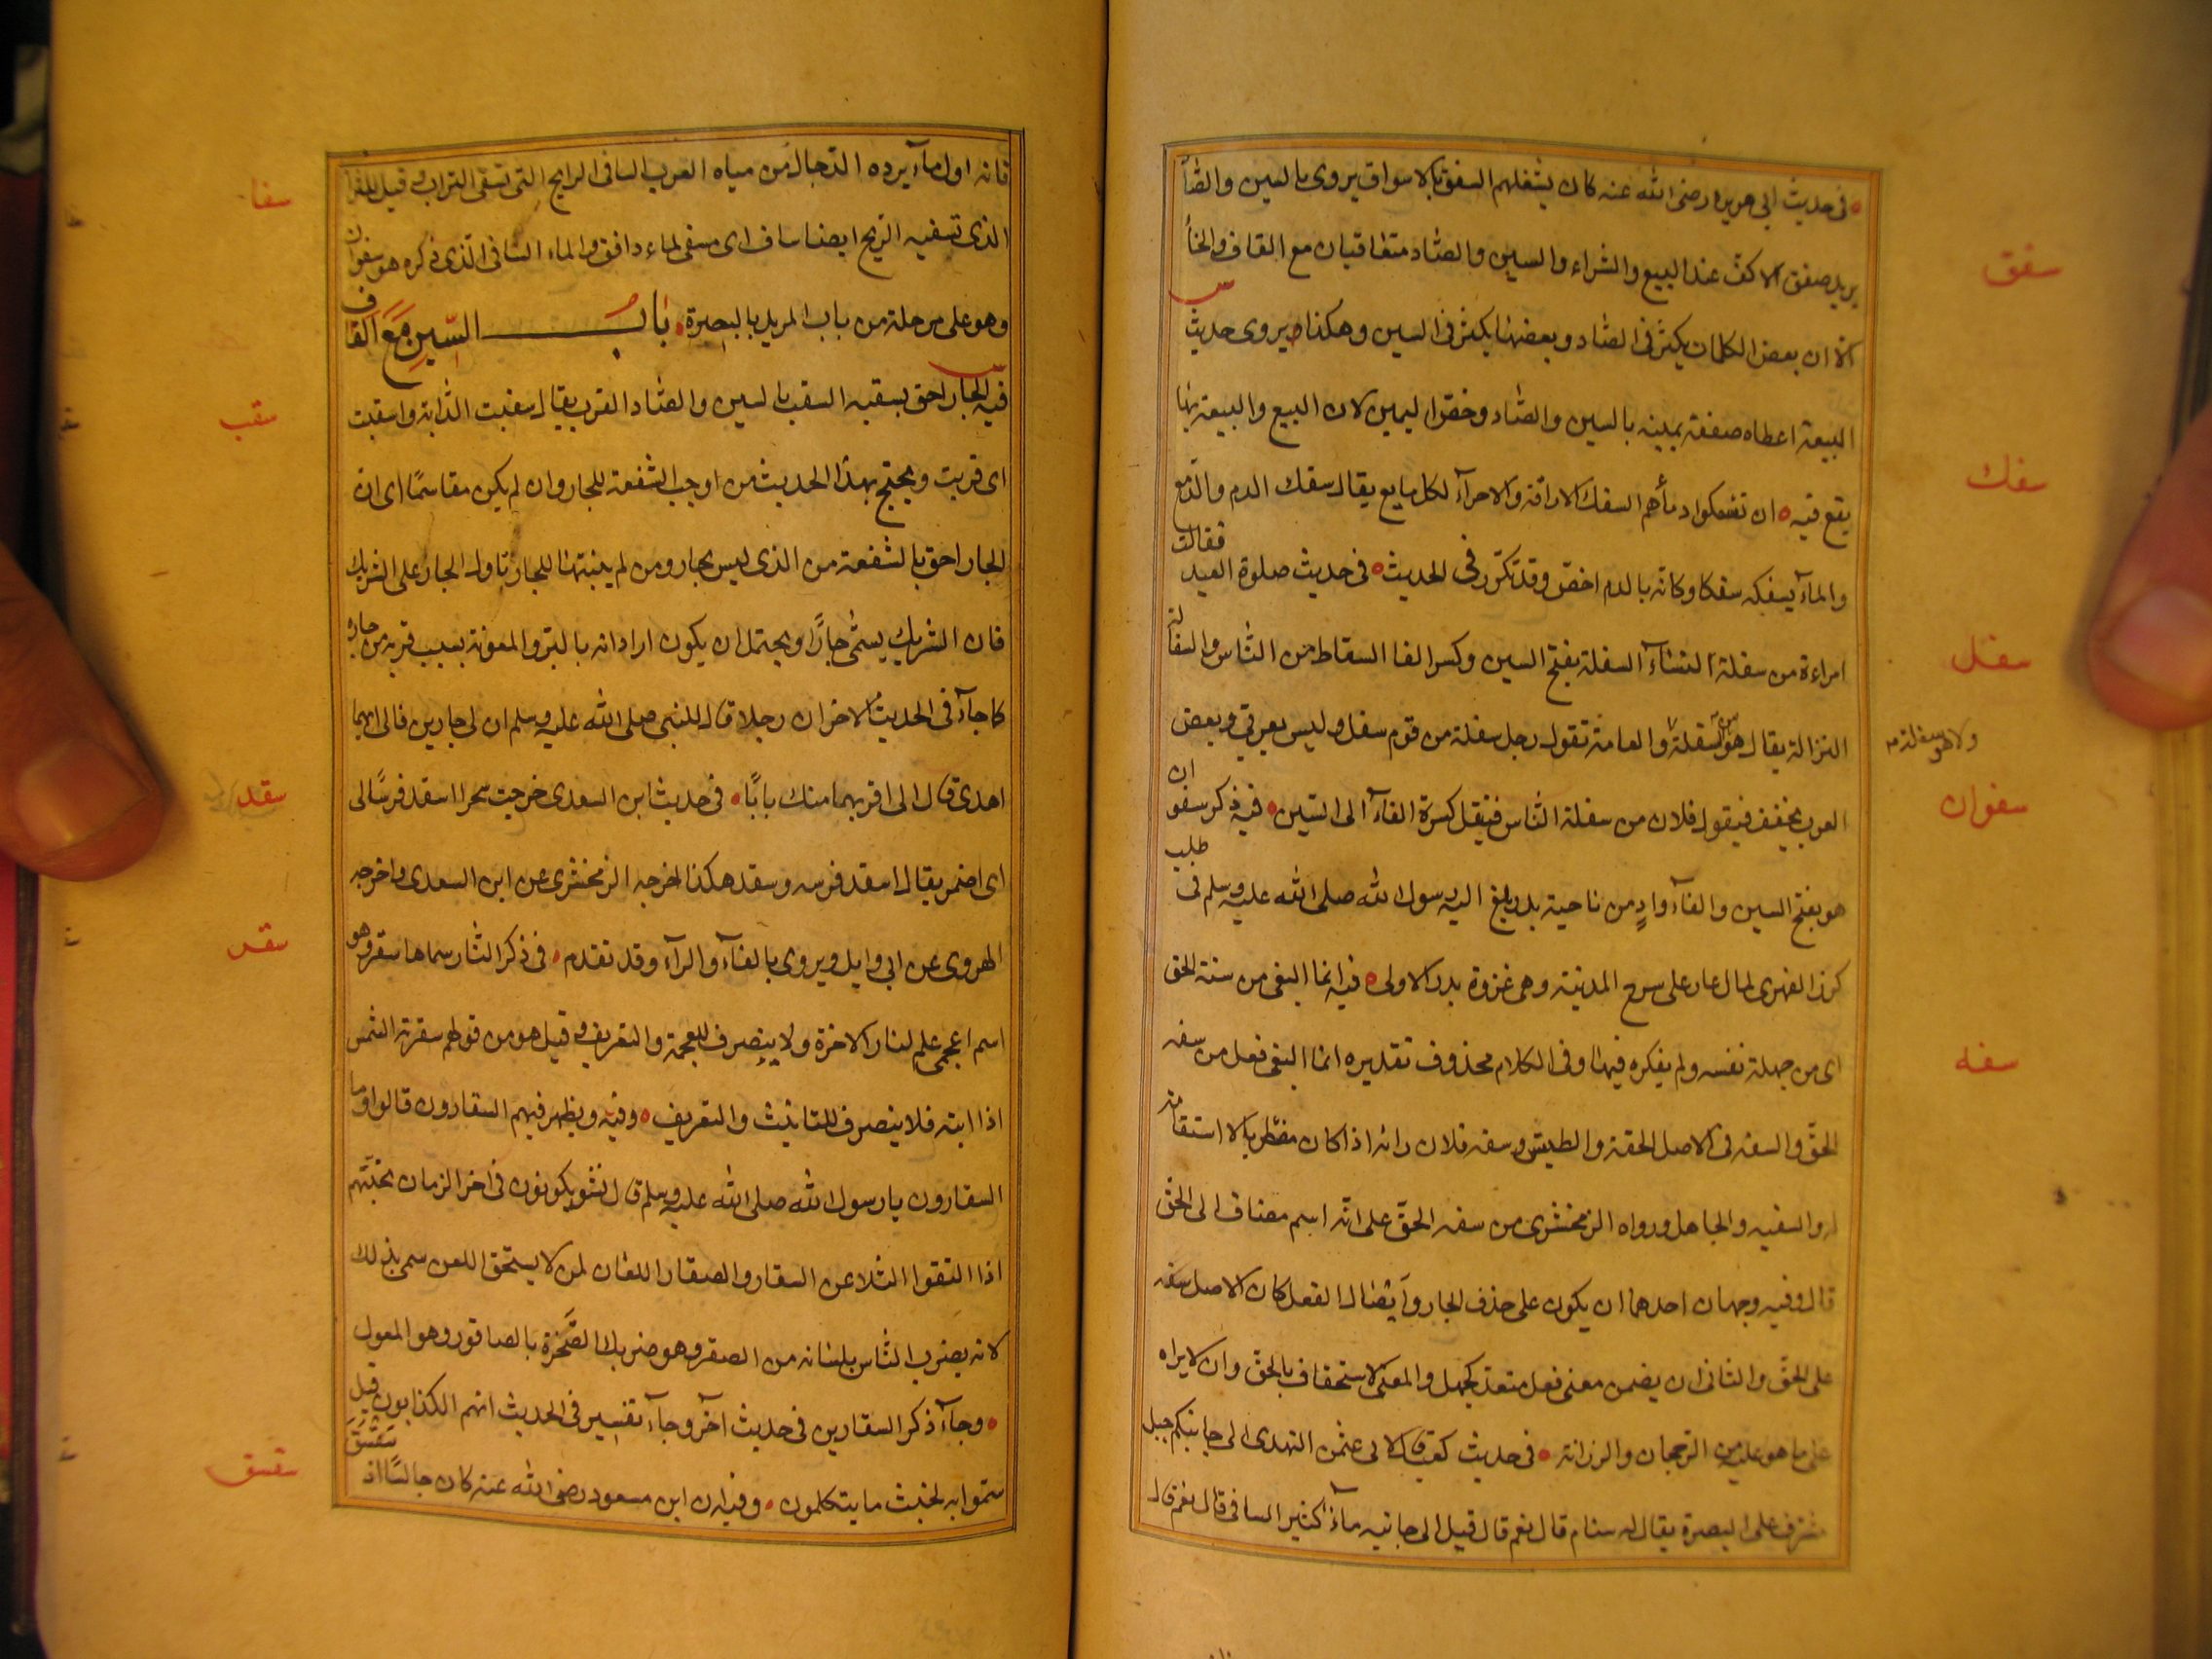 في حديث ابي هريرة رضى الله عنه كان يشغلهم السفق بالاسواق يروى بالسين والصاد
سفق
يريد صفق الاكف عند البيع والشراء والسين والصاد متعاقبان مع القاف والخاء
س
الا ان بعض الكلمات يكثر في الصاد وبعضها يكثر في السين وهكذا يروى حديث
البيعة اعطاه صفقة يمينه بالسين والصاد وخص اليمين لان البيع والبيعة بها
سفك
يقع فيه ان تسفكوا دمآءهم السفك الاراقة والاجرآء لكل مايع يقال سفك الدم والدمع
والمآء يسفكه سفكا وكانه بالدم اخص وقد تكرر في الحديث في حديث صلوة العيد فقالت
سفل
امراءة من سفلة النسآء السفلة بفتح السين وكسر الفا السقاط من الناس والسفالة
النزالة يقال هو من السفلة والعامة تقول رجل سفلة من قوم سفل وليس بعربي وبعض
ولا هو سفلة
سفوان
العرب يخفف فيقول فلان من سفلة الناس فينقل كسرة الفآء الى السين فيه ذكر سفوان
هو بفتح السين والفآء وادٍ من ناحية بدر بلغ اليه رسول الله صلى الله عليه وسلم في طلب
كرز الفهرى لما اغار على سرح المدينة وهي غزوة بدر الاولى فيه انما البغي من سفه الحق
سفه
اى من جهله نفسه ولم يفكره فيها وفي الكلام محذوف تقديره انما البغي فعل من سفه
الحق والسفه في الاصل الخفة والطيش وسفه فلان رائه اذا كان مضطربا لا استقامة
له والسفيه والجاهل ورواه الزمخشرى من سفه الحق على انه اسم مضاف الى الحق
قال وفيه وجهان احدهما ان يكون على حذف الجار وايصال الفعل كان الاصل سفه
على الحق والثاني ان يضمن معنى فعل متعد كجهل والمعنى الاستخفاف بالحق وان لا يراه
على ما هو عليه من الرجحان والرزانة في حديث كعب قال لابي عثمن النهدى الى جانبكم جبل
مشرف على البصرة يقال له سنام قال نعم قال فهل الى جانبه مآء كثير السافي قال نعم قال
فانه اول مآء يرده الدجال من مياه العرب السافي الرايح التي تسفي التراب وقيل للتراب
سفا
الذى تسفيه الريح ايضا ساف اى مسفي لماء دافق والماء السافي الذى ذكره هو سفوان
وهو على مرحلة من باب المربد بالبصرة باب السين مع القاف
سقب
فيه الجار احق بسقبه السقب بالسين والصاد القرب يقال سقبت الدار واسقبت
اى قربت ويحتج بهذا الحديث من اوجب الشفعة للجار وان لم يكن مقاسمًا اى ان
الجار احق بالشفعة من الذى ليس بجار ومن لم يثبتها للجار تاول الجار على الشريك
فان الشريك يسمى جارًا ويحتمل ان يكون اراد انه بالبر والمعونة بسبب قربه من جاره
كما جآء في الحديث الاخر ان رجلا قال للنبي صلى الله عليه وسلم ان لى جارين فالى ايهما
سقد
اهدى قال الى اقربهما منك بابًا في حديث ابن السعدى خرجت سحرا اسقد فرسًا لى
اى اضمر يقال اسقد فرسه وسقد هكذا اخرجه الزمخشرى عن ابن السعدى واخرجه
سقر
الهروى عن ابي وايل ويروى بالفآء والرآء وقد تقدم في ذكر النار سماها سقر وهو
اسم اعجمى علم لنار الاخرة ولا ينصرف للعجمة والتعريف وقيل هو من قولهم سقرته الشمس
اذا ابته فلا ينصرف للتانيث والتعريف وفيه ويظهر فيهم السقارون قالوا وما
السقارون يا رسول الله صلى الله عليه وسلم قال نشو يكونون في اخر الزمان تحيتهم
اذا التقوا التلاعن السقار والصقار اللعان لمن لا يستحق اللعن سمى بذلك
لانه يضرب الناس بلسانه من الصقر وهو ضربك الصخرة بالصاقور وهو المعول
وجآء ذكر السقارين في حديث آخر وجآء تفسير في الحديث انهم الكذابون قيل
سقسق
سموا به لخبث ما يتكلمون وفيه ان ابن مسعود رضى الله عنه كان جالسًا اذ سقسق